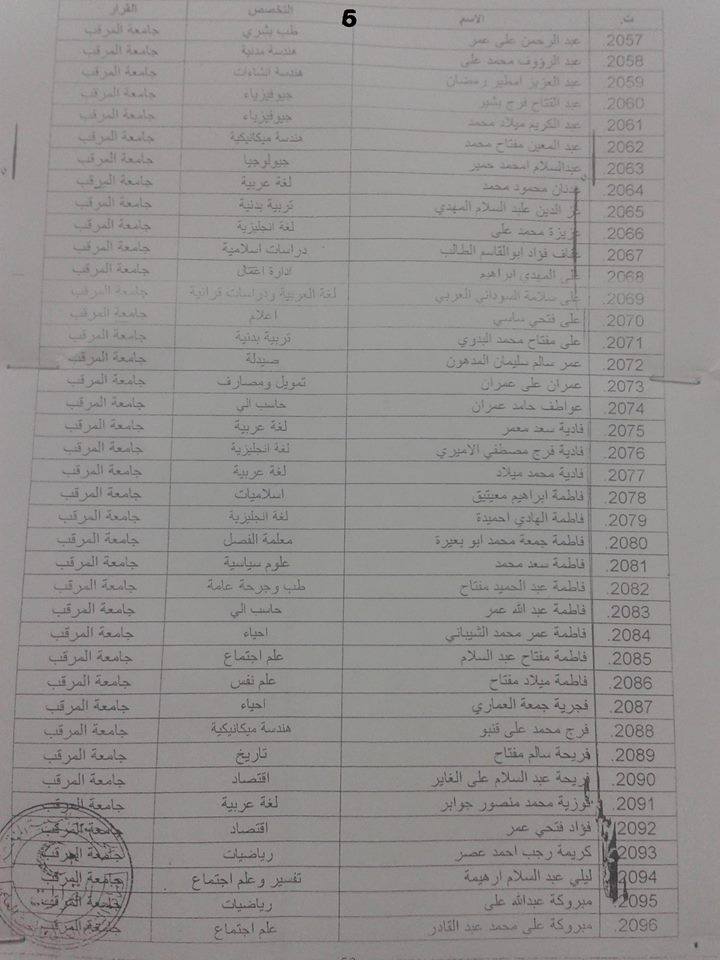 5
ت. الاسم التخصص القرار
2057. عبد الرحمن على عمر طب بشري جامعة المرقب
2058. عبد الرؤوف محمد على هندسة مدنية جامعة المرقب
2059. عبد العزيز امطير رمضان هندسة انشاءات جامعة المرقب
2060. عبد الفتاح فرج بشير جيوفيزياء جامعة المرقب
2061. عبد الكريم ميلاد محمد جيوفيزياء جامعة المرقب
2062. عبد المعين مفتاح محمد هندسة ميكانيكية جامعة المرقب
2063. عبدالسلام امحمد حمير جيولوجيا جامعة المرقب
2064. عدنان محمود محمد لغة عربية جامعة المرقب
2065. عز الدين علبد السلام المهدي تربية بدنية جامعة المرقب
2066. عزيزة محمد على لغة انجليزية جامعة المرقب
2067. عفاف فؤاد ابوالقاسم الطالب دراسات اسلامية جامعة المرقب
2068. على المهدي ابراهيم ادارة اعمال جامعة المرقب
2069. على سلامة السوداني العربي لغة العربية ودراسات قرانية جامعة المرقب
2070. على فتحي ساسي اعلام جامعة المرقب
2071. على مفتاح محمد البدوي تربية بدنية جامعة المرقب
2072. عمر سالم سليمان المدهون صيدلة جامعة المرقب
2073. عمران على عمران تمويل ومصارف جامعة المرقب
2074. عواطف حامد عمران حاسب الي جامعة المرقب
2075. فادية سعد معمر لغة عربية جامعة المرقب
2076. فادية فرج مصطفي الاميري لغة انجليزية جامعة المرقب
2077. فادية محمد ميلاد لغة عربية جامعة المرقب
2078. فاطمة ابراهيم معيتيق اسلاميات جامعة المرقب
2079. فاطمة الهادي احميدة لغة انجليزية جامعة المرقب
2080. فاطمة جمعة محمد ابو بعيرة معلمة الفصل جامعة المرقب
2081. فاطمة سعد محمد علوم سياسية جامعة المرقب
2082. فاطمة عبد الحميد مفتاح طب وجرحة عامة جامعة المرقب
2083. فاطمة عبد الله عمر حاسب الي جامعة المرقب
2084. فاطمة عمر محمد الشيباني احياء جامعة المرقب
2085. فاطمة مفتاح عبد السلام علم اجتماع جامعة المرقب
2086. فاطمة ميلاد مفتاح علم نفس جامعة المرقب
2087. فجرية جمعة العماري احياء جامعة المرقب
2088. فرج محمد على قنبو هندسة ميكانيكية جامعة المرقب
2089. فريحة سالم مفتاح تاريخ جامعة المرقب
2090. فريحة عبد السلام على الغاير اقتصاد جامعة المرقب
2091. فوزية محمد منصور جوابر لغة عربية جامعة المرقب
2092. فؤاد فتحي عمر اقتصاد جامعة المرقب
2093. كريمة رجب احمد عصر رياضيات جامعة المرقب
2094. ليلي عبد السلام ارهيمة تفسير وعلم اجتماع جامعة المرقب
2095. مبروكة عبدالله على رياضيات جامعة المرقب
2096. مبروكة على محمد عبد القادر علم اجتماع جامعة المرقب